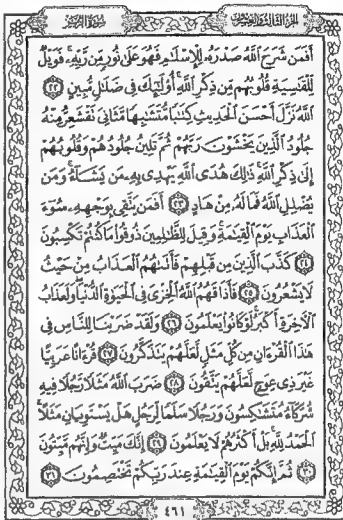 سُورَةُ الزُّمَرِ
الجزء الثالث والعشرون
أَفَمَن شَرَحَ ٱللَّهُ صَدْرَهُۥ لِلْإِسْلَٰمِ فَهُوَ عَلَىٰ نُورٍ مِّن رَّبِّهِۦ ۚ فَوَيْلٌ
لِّلْقَٰسِيَةِ قُلُوبُهُم مِّن ذِكْرِ ٱللَّهِ ۚ أُو۟لَٰٓئِكَ فِى ضَلَٰلٍ مُّبِينٍ ٢٢
ٱللَّهُ نَزَّلَ أَحْسَنَ ٱلْحَدِيثِ كِتَٰبًا مُّتَشَٰبِهًا مَّثَانِىَ تَقْشَعِرُّ مِنْهُ
جُلُودُ ٱلَّذِينَ يَخْشَوْنَ رَبَّهُمْ ثُمَّ تَلِينُ جُلُودُهُمْ وَقُلُوبُهُمْ
إِلَىٰ ذِكْرِ ٱللَّهِ ۚ ذَٰلِكَ هُدَى ٱللَّهِ يَهْدِى بِهِۦ مَن يَشَآءُ ۚ وَمَن
يُضْلِلِ ٱللَّهُ فَمَا لَهُۥ مِنْ هَادٍ ٢٣ أَفَمَن يَتَّقِى بِوَجْهِهِۦ سُوٓءَ
ٱلْعَذَابِ يَوْمَ ٱلْقِيَٰمَةِ ۚ وَقِيلَ لِلظَّٰلِمِينَ ذُوقُوا۟ مَا كُنتُمْ تَكْسِبُونَ
٢٤ كَذَّبَ ٱلَّذِينَ مِن قَبْلِهِمْ فَأَتَىٰهُمُ ٱلْعَذَابُ مِنْ حَيْثُ
لَا يَشْعُرُونَ ٢٥ فَأَذَاقَهُمُ ٱللَّهُ ٱلْخِزْىَ فِى ٱلْحَيَوٰةِ ٱلدُّنْيَا ۖ وَلَعَذَابُ
ٱلْـَٔاخِرَةِ أَكْبَرُ ۚ لَوْ كَانُوا۟ يَعْلَمُونَ ٢٦ وَلَقَدْ ضَرَبْنَا لِلنَّاسِ فِى
هَٰذَا ٱلْقُرْءَانِ مِن كُلِّ مَثَلٍ لَّعَلَّهُمْ يَتَذَكَّرُونَ ٢٧ قُرْءَانًا عَرَبِيًّا
غَيْرَ ذِى عِوَجٍ لَّعَلَّهُمْ يَتَّقُونَ ٢٨ ضَرَبَ ٱللَّهُ مَثَلًا رَّجُلًا فِيهِ
شُرَكَآءُ مُتَشَٰكِسُونَ وَرَجُلًا سَلَمًا لِّرَجُلٍ هَلْ يَسْتَوِيَانِ مَثَلًا ۚ
ٱلْحَمْدُ لِلَّهِ ۚ بَلْ أَكْثَرُهُمْ لَا يَعْلَمُونَ ٢٩ إِنَّكَ مَيِّتٌ وَإِنَّهُم مَّيِّتُونَ
٣٠ ثُمَّ إِنَّكُمْ يَوْمَ ٱلْقِيَٰمَةِ عِندَ رَبِّكُمْ تَخْتَصِمُونَ ٣١
٤٦١